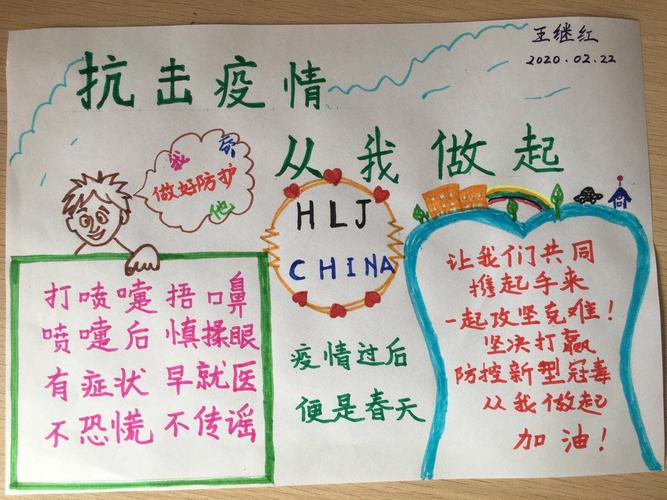 王继红
2020.02.22
抗击疫情
从我做起
我 你
做好防护
他
HLJ
CHINA
打喷嚏 捂口鼻
喷嚏后 慎揉眼
有症状 早就医
不恐慌 不传谣
疫情过后
便是春天
让我们共同
携起手来
一起攻坚克难!
坚决打赢
防控新型冠毒
从我做起
加油!